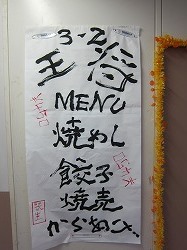 3-2
王将
MENU
焼めし
餃子
焼売
からあげ